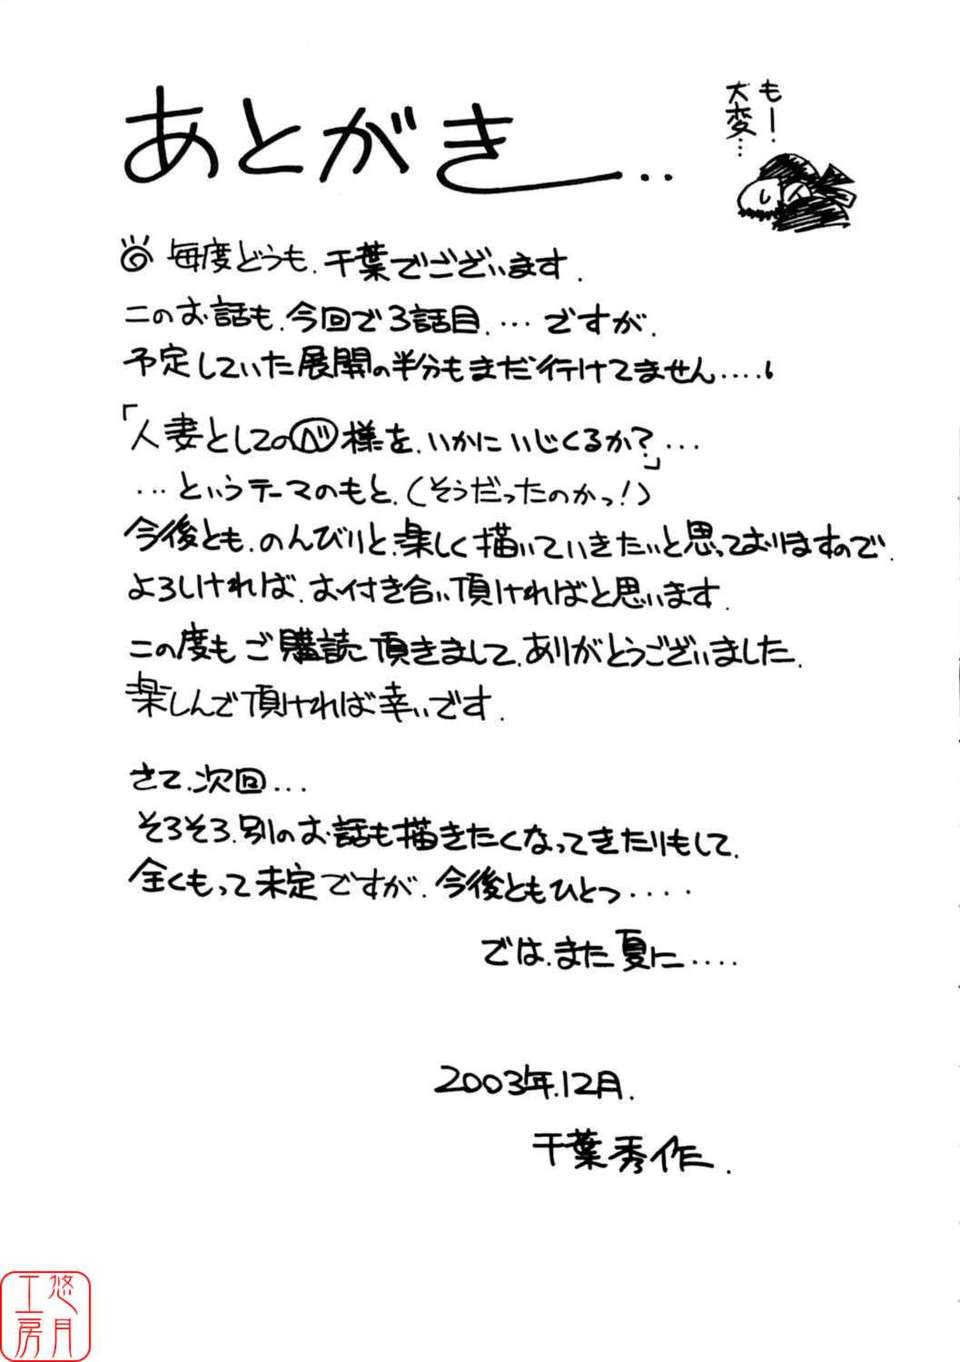 あとがき...
もー!
大変...
◎毎度どうも、千葉でございます。
このお話も、今回で3話目、...ですが、
予定していた展開の半分もまだ行けてません....。
「人妻としてのベ様を、いかにいじくるか?」...
...というテーマのもと、(そうだったのかっ!)
今後とも、のんびりと、楽しく描いていきたいと思っておりますので、
よろしければ、お付き合い頂ければと思います。
この度もご購読頂きまして、ありがとうございました。
楽しんで頂ければ幸いです。
さて、次回...
そろそろ、別のお話も描きたくなってきたりもして、
全くもって未定ですが、今後ともひとつ....
では、また夏に....
2003年、12月.
千葉秀作.
悠月
工房